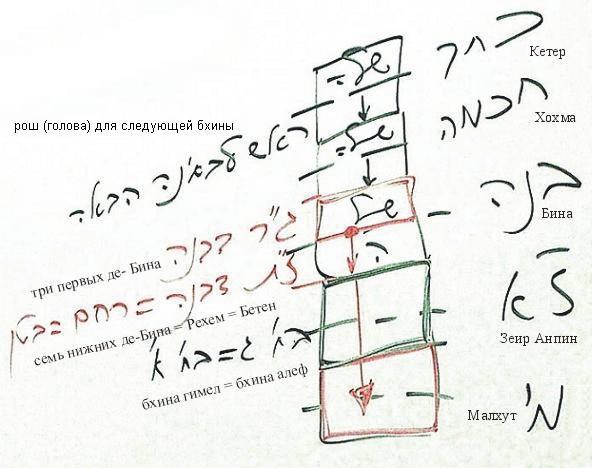 כתר
Кетер
חכמה
Хохма
בינה
Бина
ז"א
Зеир Анпин
מ'
Малхут
рош (голова) для следующей бхины
ראש לבחינה הבאה
ג"ר דבינה
три первых де- Бина
ז"ת דבינה = רחם = בטן
семь нижних де-Бина = Рехем = Бетен
בח' ג = בח' א
бхина гимел = бхина алеф
ה